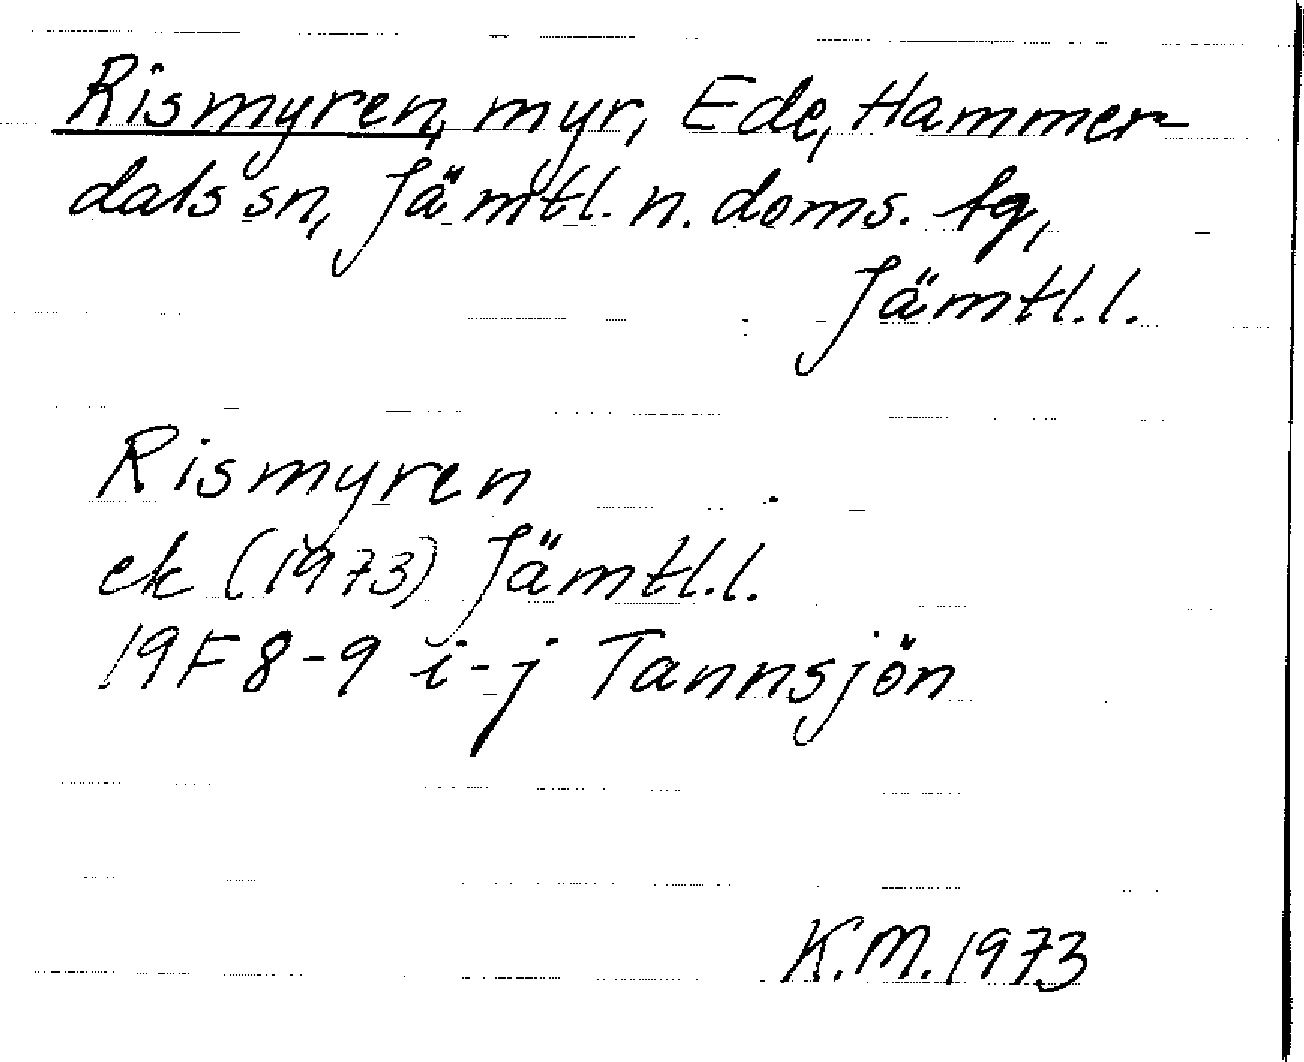 Rismyren, myr, Ede, Hammer-
dals sn, Jämtl. n. doms. tg,
Jämtl.l.
Rismyren
ek (1973) Jämtl.l.
19F 8-9 i-j Tannsjön
K.M. 1973